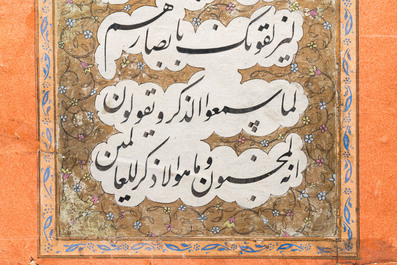 لیزلقونک بابصارهم
لما سمعوا الذکر و یقولون
انه لمجنون و ما هو الا ذکر للعالمین